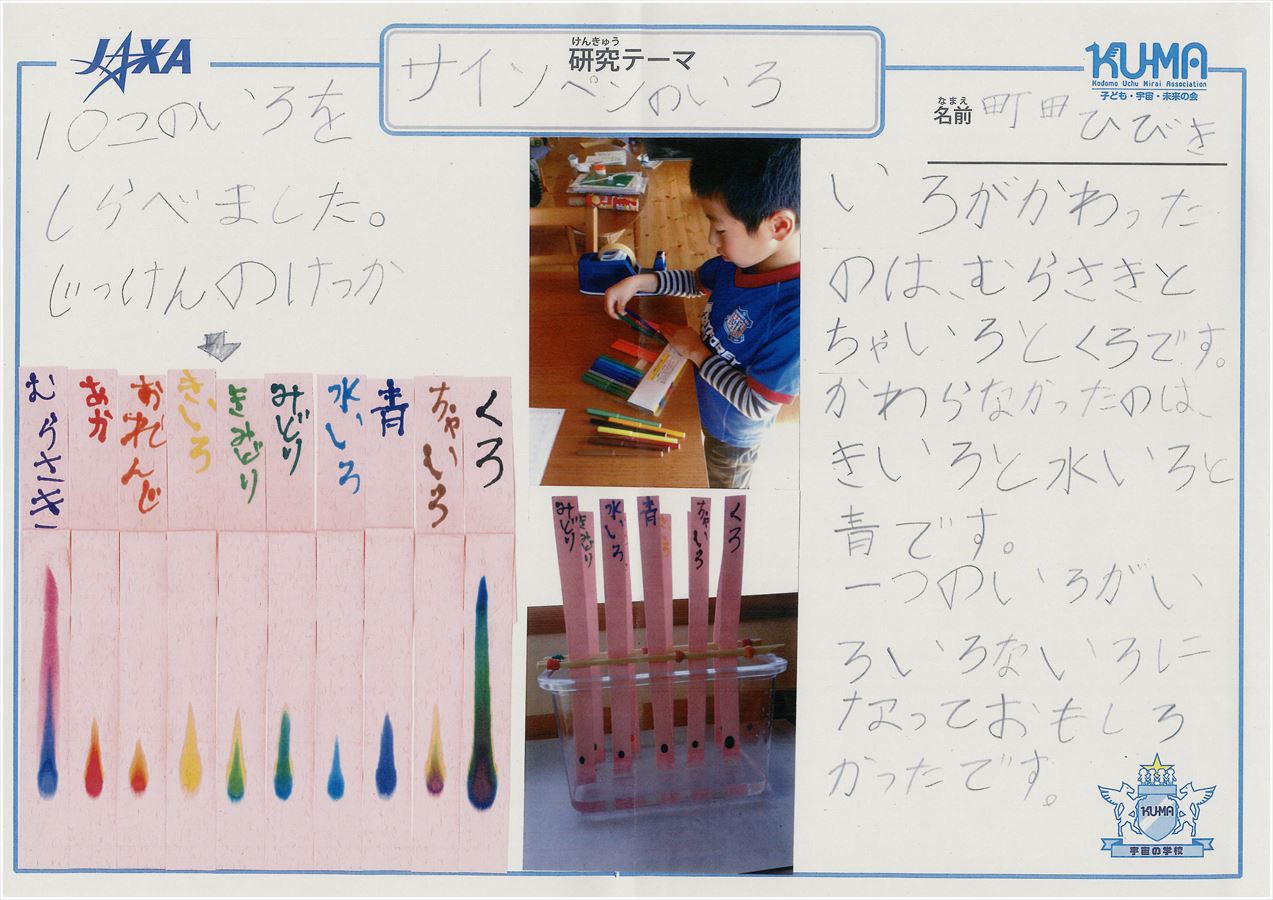 JAXA
けんきゅう
研究テーマ
サインペンのいろ
KU-MA
Kodomo Uchu Mirai Association
子ども・宇宙・未来の会
なまえ
名前
町田ひびき
10このいろを
しらべました。
じっけんのけっか
むらさき
あか
おれんじ
きいろ
きみどり
みどり
水いろ
青
ちゃいろ
くろ
みどり
きみどり
水いろ
青
ちゃいろ
くろ
いろがかわった
のは、むらさきと
ちゃいろとくろです。
かわらなかったのは、
きいろと水いろと
青です。
一つのいろがい
ろいろないろに
なっておもしろ
かったです。
KU-MA
宇宙の学校